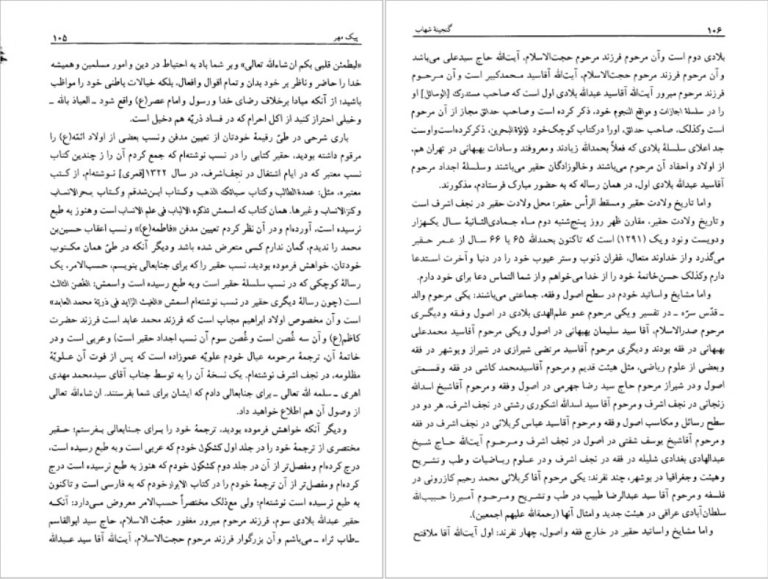 پیک مهر
۱۰۵
«لیطمئن قلبی بکم ان شاءالله تعالی» و بر شما باد به احتیاط در دین و امور مسلمین و همیشه
خدا را حاضر و ناظر بر خود بدان و تمام اقوال و افعال، بلکه خیالات باطنی خود را مواظب
باشید؛ از آنکه مبادا برخلاف رضای خدا و رسول و امام عصر(ع) واقع شود ـ العیاذ بالله ـ
و خیلی احتراز کنید از اکل احرام که در فساد ذریّه هم دخیل است.
باری شرحی در طیّ رقیمهٔ خودتان از تعیین مدفن و نسب بعضی از اولاد ائمّه(ع) را
مرقوم داشته بودید، حقیر کتابی را در نسب نوشته‌ام که جمع کردم آن را از چندین کتاب
نسب معتبر که در ایام اشتغال در نجف‌اشرف، در سال ۱۳۲۲ [قمری] نوشته‌ام، از کتب
معتبره، مثل: عمدة الطالب و کتاب سبائک الذهب و کتاب ابن‌شدقم و کتاب بحر الانساب
و کنز الانساب و غیرها. همان کتاب که اسمش تذکره الالباب فی علم الانساب است و هنوز به طبع
نرسیده است، آورده‌ام و در آن نظر کردم تعیین مدفن «فاطمه(ع)» و نسب اعقاب حسین‌بن
محمد را ندیدم، گمان ندارم کسی متعرض شده باشد و دیگر آنکه در طیّ همان مکتوب
خودتان، خواهش فرموده بودید، نسب حقیر را که برای جنابعالی بنویسم، حسب‌الامر، یک
رسالهٔ کوچکی که در نسب سلسلهٔ حقیر است و به طبع رسیده است و اسمش: الغُصن الثالث
است (چون رسالهٔ دیگری حقیر در نسب نوشته‌ام اسمش «الغیث الزّاید فی ذریّة محمد العابد»
است و آن مخصوص اولاد ابراهیم مجاب است که فرزند محمد عابد است فرزند حضرت
کاظم(ع) و آن سه غُصن است و غُصن سوم آن نسب اجداد حقیر است) و عربی است و در
خاتمهٔ آن، ترجمهٔ مرحومه عیال خودم علویّه عموزاده است که پس از فوت آن علویّهٔ
مظلومه، در نجف اشرف نوشته‌ام. یک نسخهٔ آن را به توسط جناب آقای سیدمحمد مهدی
اهری ـ سلمه الله تعالی ـ برای جنابعالی دادم که ایشان برای شما بفرستند. ان شاءالله تعالی
از وصول آن هم اطلاع خواهید داد.
و دیگر آنکه خواهش فرموده بودید، ترجمهٔ خود را برای جنابعالی بفرستم؛ حقیر
مختصری از ترجمهٔ خود را در جلد اول کشکول خودم که عربی است و به طبع رسیده است،
درج کرده‌ام و مفصل‌تر از آن در جلد دوم کشکول خودم که هنوز به طبع نرسیده است درج
کرده‌ام و مفصل‌تر از آن ترجمهٔ خودم را در کتاب الابراز خودم که به فارسی است و تاکنون
به طبع نرسیده است نوشته‌ام؛ ولی مع‌ذلک مختصراً حسب‌الامر معروض می‌دارد: آنکه
حقیر عبدالله بلادی سوم، فرزند مرحوم مبرور مغفور حجّت الاسلام، حاج سید ابوالقاسم
ـ طاب ثراه ـ می‌باشم و آن بزرگوار فرزند مرحوم حجت‌الاسلام، آیت‌الله آقا سید عبدالله
۱۰۶
گنجینهٔ شهاب
بلادی دوم است و آن مرحوم فرزند مرحوم حجت‌الاسلام، آیت‌الله حاج سیدعلی می‌باشد
و آن مرحوم فرزند مرحوم حجت‌الاسلام، آیت‌الله آقاسید محمدکبیر است و آن مرحوم
فرزند مرحوم مبرور آیت‌الله آقاسید عبدالله بلادی اول است که صاحب مستدرک [الوسائل] او
را در سلسلهٔ اجازات و مواقع النجوم خود، ذکر کرده است و صاحب حدائق مجاز از آن مرحوم
است و کذلک، صاحب حدائق، او را در کتاب کوچک خود لؤلؤة البحرین، ذکر کرده است و اوست
جد اعلای سلسلهٔ بلادی که فعلاً بحمدالله زیادند و معروفند و سادات بهبهانی در تهران هم،
از اولاد و احفاد آن مرحوم می‌باشند و خالوزادگان حقیر می‌باشند و سلسلهٔ اجداد مرحوم
آقاسید عبدالله بلادی اول، در همان رساله که به حضور مبارک فرستادم، مذکورند.
و اما تاریخ ولادت حقیر و مسقط الرأس حقیر: محل ولادت حقیر در نجف اشرف است
و تاریخ ولادت حقیر، مقارن ظهر روز پنج‌شنبه دوم ماه جمادی‌الثانیهٔ سال یکهزار
و دویست و نود و یک (۱۲۹۱) است که تاکنون بحمدالله ۶۵ یا ۶۶ سال از عمر حقیر
می‌گذرد و از خداوند متعال، غفران ذنوب و ستر عیوب خود را در دنیا و آخرت استدعا
دارم و کذلک حسن‌خاتمهٔ خود را از خدا می‌خواهم و از شما التماس دعا برای خود دارم.
و اما مشایخ و اساتید خودم در سطح اصول و فقه، جماعتی می‌باشند: یکی مرحوم والد
ـ قدّس سرّه ـ در تفسیر و یکی مرحوم عمو علم‌الهدی بلادی در اصول و فقه و دیگری
مرحوم صدرالاسلام، آقا سید سلیمان بهبهانی در اصول و یکی مرحوم آقاسید محمدعلی
بهبهانی در فقه بودند و دیگری مرحوم آقاسید مرتضی شیرازی در شیراز و بوشهر در فقه
و بعضی از علوم ریاضی، مثل هیئت قدیم و مرحوم آقاسیدمحمد کاشی در فقه و قسمتی
اصول و در شیراز مرحوم حاج سید رضا جهرمی در اصول و فقه و مرحوم آقاشیخ اسدالله
زنجانی در نجف اشرف و مرحوم آقا سید اسدالله اشکوری رشتی در نجف اشرف، هر دو در
سطح رسائل و مکاسب اصول و فقه و مرحوم آقاسید عباس کربلائی در نجف اشرف در فقه
و مرحوم آقاشیخ یوسف شفتی در اصول در نجف اشرف و مرحوم آیت‌الله حاج شیخ
عبدالهادی بغدادی شلیله در فقه در نجف اشرف و در علوم ریاضیات و طب و تشریح
و هیئت و جغرافیا در بوشهر، چند نفرند: یکی مرحوم آقا کربلائی محمد رحیم کازرونی در
فلسفه و مرحوم آقا سید عبدالرضا طبیب در طب و تشریح و مرحوم آمیرزا حبیب‌الله
سلطان‌آبادی عراقی در هیئت جدید و امثال آنها (رحمة‌الله علیهم اجمعین).
و اما مشایخ و اساتید حقیر در خارج فقه و اصول، چهار نفرند: اول آیت‌الله آقا ملافتح